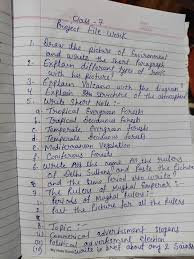 Class - 7
Project File Work
1. Draw the picture of Environment
and write the short Paragraph
2. Explain different types of
with his picture!
3. Explain Volcano with the diagram
4. Explain the structure of the atmosphere
5. Write Short Note :-
a. Tropical Evergreen Forests
b. Tropical Deciduous Forests
c. Temperate Evergreen Forests
d. Temperate Deciduous Forests
e. Mediterranean Vegetation
f. Coniferous Forests
6. Write the name the rulers
of Delhi Sultans and Paste the Picture
and the time period
7. The Rulers of Mughal Emperor :-
Periods of Mughal
Past the Picture for all the rulers
8. Topic :-
(i) Commercial advertisement slogans
(ii) Political advertisement Election
write in brief about any 2